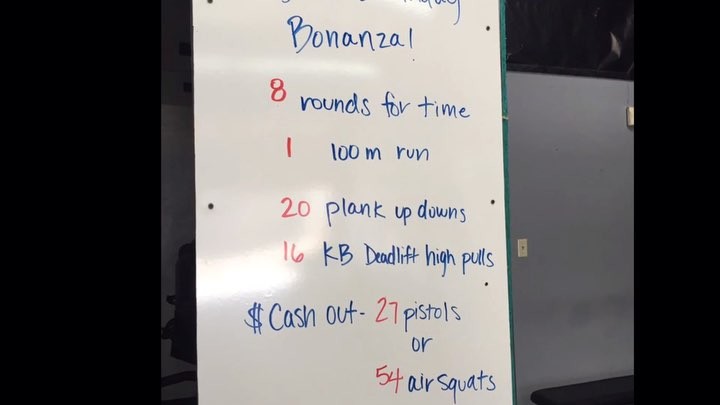 Bonanza!
8 rounds for time
1 100m run
20 plank up downs
16 KB Deadlift high pulls
$ Cash out - 27 pistols
or
54 air squats